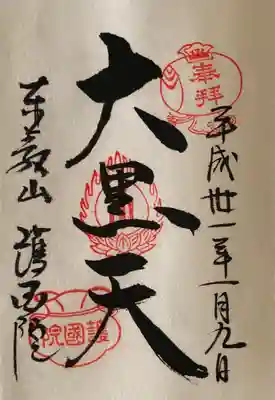 奉拝
平成卅一年一月九日
大黒天
護國院
東叡山 護国院